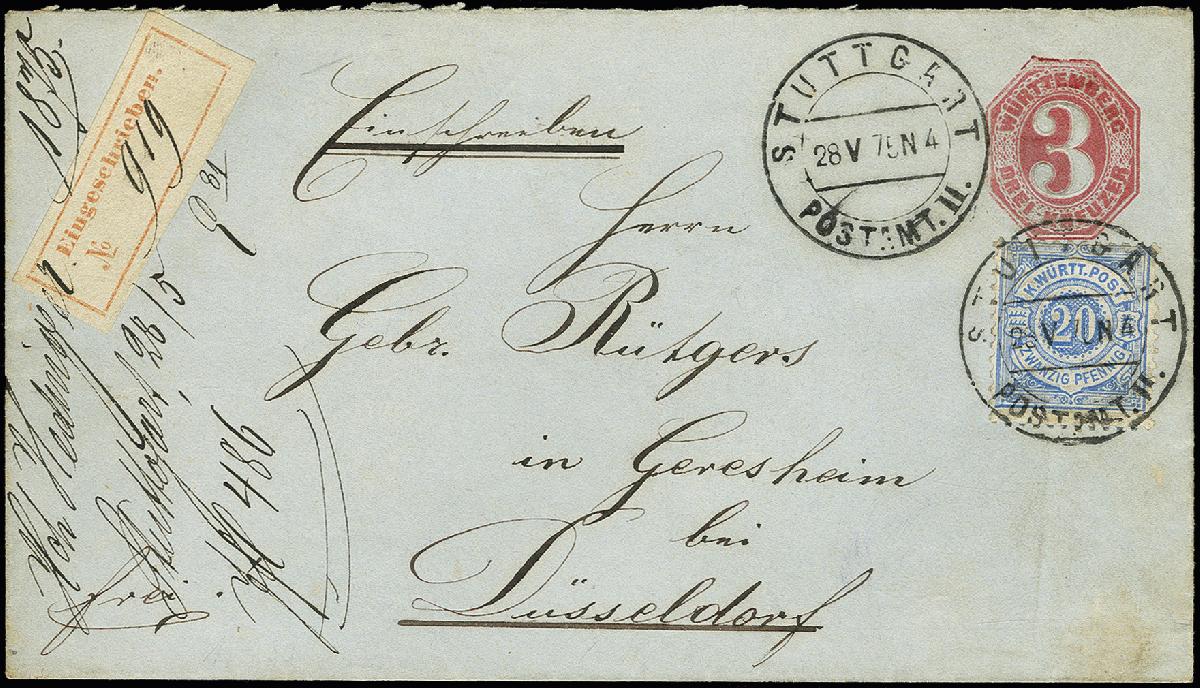 Einschreiben
Herrn
Gebr. Rütgers
in Geresheim
bei
Düsseldorf
Eingeschrieben.
№ 919
STUTTGART
28 V 75 N 4
POSTAMT. II.
WÜRTTEMBERG
3
DREI KREUZER
K. WÜRTT. POST
20
ZWANZIG PFENNIG
STUTTGART
28 V 7 N 4
POSTAMT. II.
Stuttgart, 28/5
frei.
486